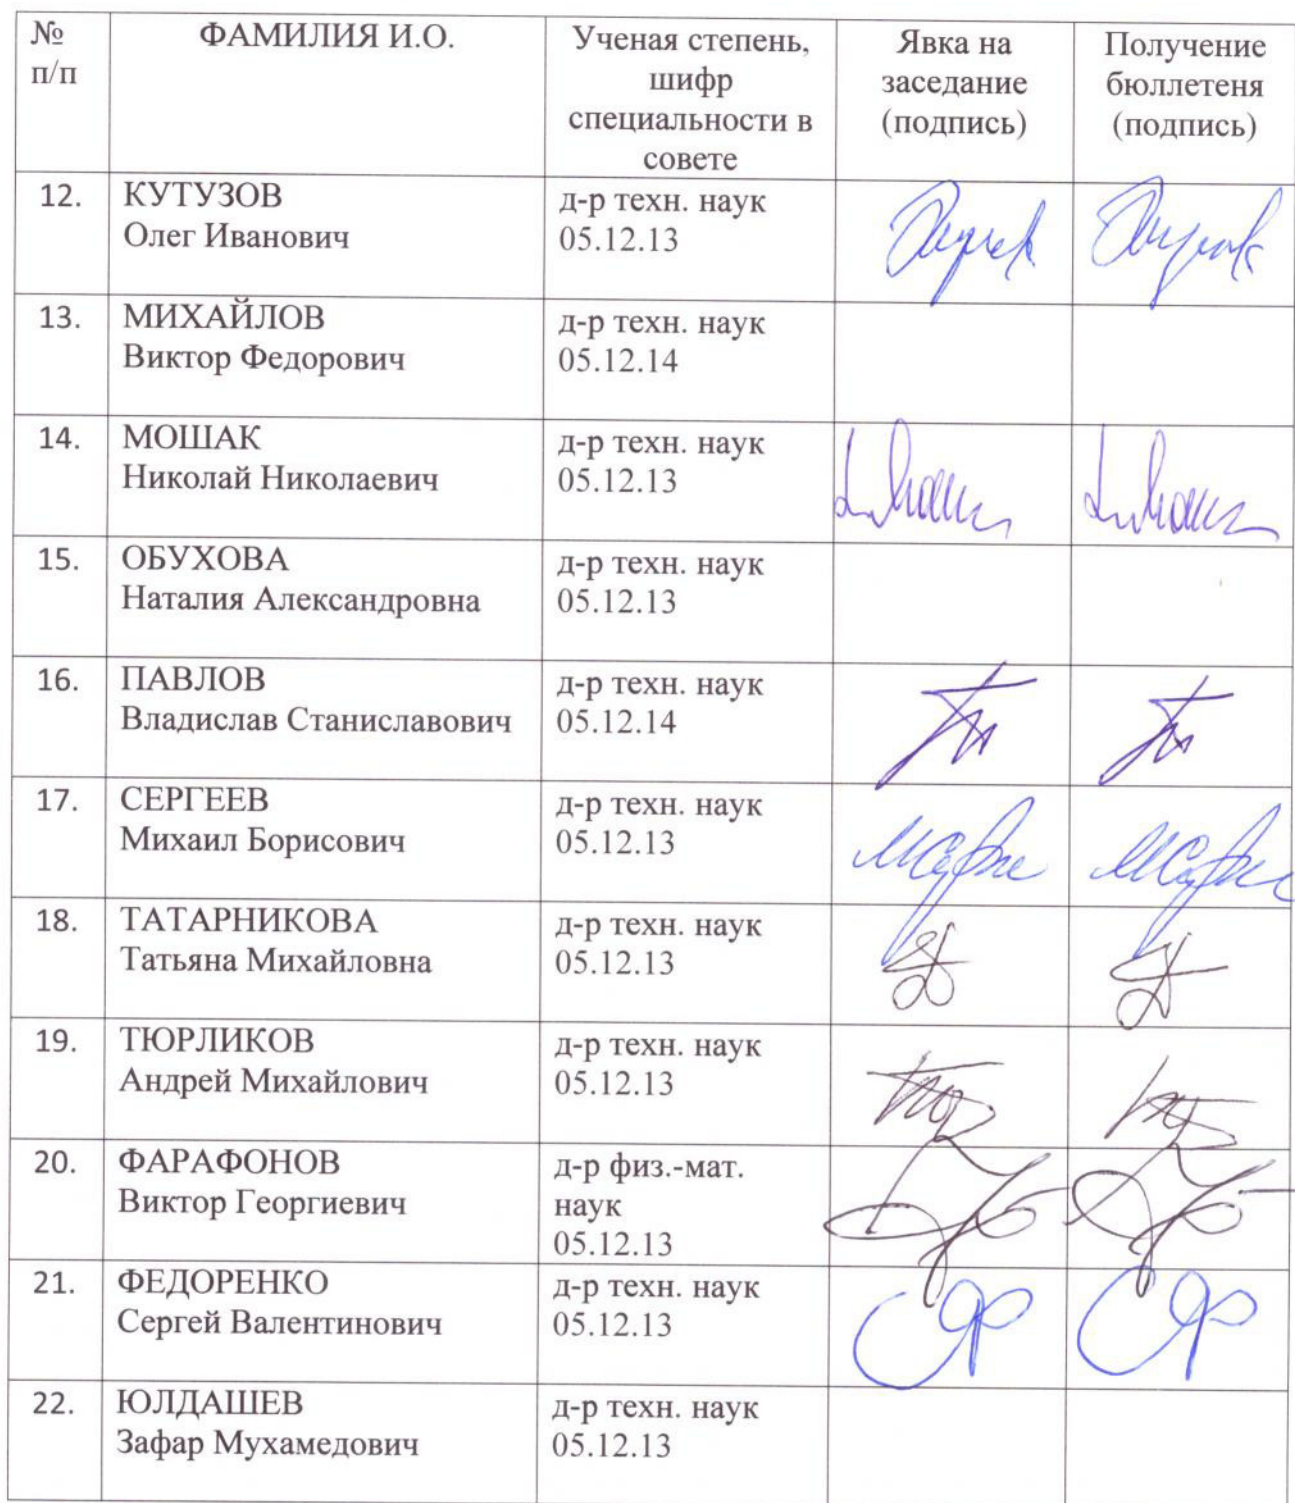 № п/п
ФАМИЛИЯ И.О.
Ученая степень, шифр специальности в совете
Явка на заседание (подпись)
Получение бюллетеня (подпись)
12.
КУТУЗОВ
Олег Иванович
д-р техн. наук
05.12.13
13.
МИХАЙЛОВ
Виктор Федорович
д-р техн. наук
05.12.14
14.
МОШАК
Николай Николаевич
д-р техн. наук
05.12.13
15.
ОБУХОВА
Наталия Александровна
д-р техн. наук
05.12.13
16.
ПАВЛОВ
Владислав Станиславович
д-р техн. наук
05.12.14
17.
СЕРГЕЕВ
Михаил Борисович
д-р техн. наук
05.12.13
18.
ТАТАРНИКОВА
Татьяна Михайловна
д-р техн. наук
05.12.13
19.
ТЮРЛИКОВ
Андрей Михайлович
д-р техн. наук
05.12.13
20.
ФАРАФОНОВ
Виктор Георгиевич
д-р физ.-мат.
наук
05.12.13
21.
ФЕДОРЕНКО
Сергей Валентинович
д-р техн. наук
05.12.13
22.
ЮЛДАШЕВ
Зафар Мухамедович
д-р техн. наук
05.12.13